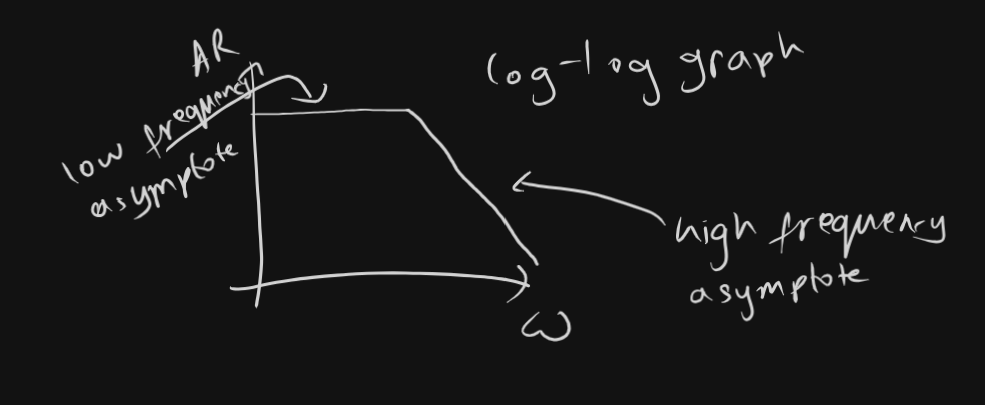 AR
log-log graph
low frequency
asymptote
high frequency
asymptote
ω